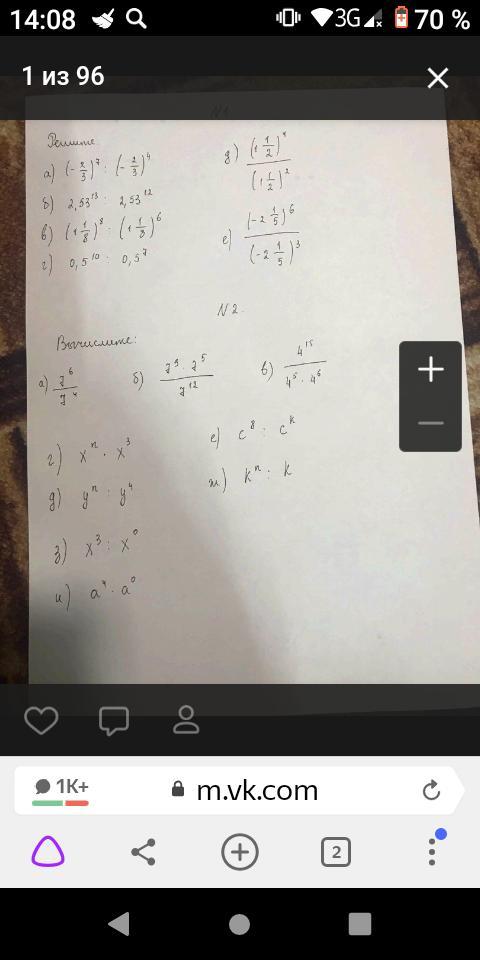 14:08 3G 70 %
1 из 96
N1
Решите
а) (-2/3)⁷ : (-2/3)⁴
б) 2,53¹³ : 2,53¹²
в) (1 1/8)⁸ : (1 1/3)⁶
г) 0,5¹⁰ : 0,5⁷
д) (1 1/2)⁴ / (1 1/2)²
е) (-2 1/5)⁶ / (-2 1/5)³
N2.
Вычислите:
а) 7⁶ / 7⁴
б) 7⁹ · 7⁵ / 7¹²
в) 4¹⁵ / 4⁵ · 4⁶
г) xⁿ · x³
д) yⁿ : y⁴
е) c⁸ : cᵏ
ж) kⁿ : k
з) x³ : x⁰
и) a⁴ · a⁰
1K+ m.vk.com
2